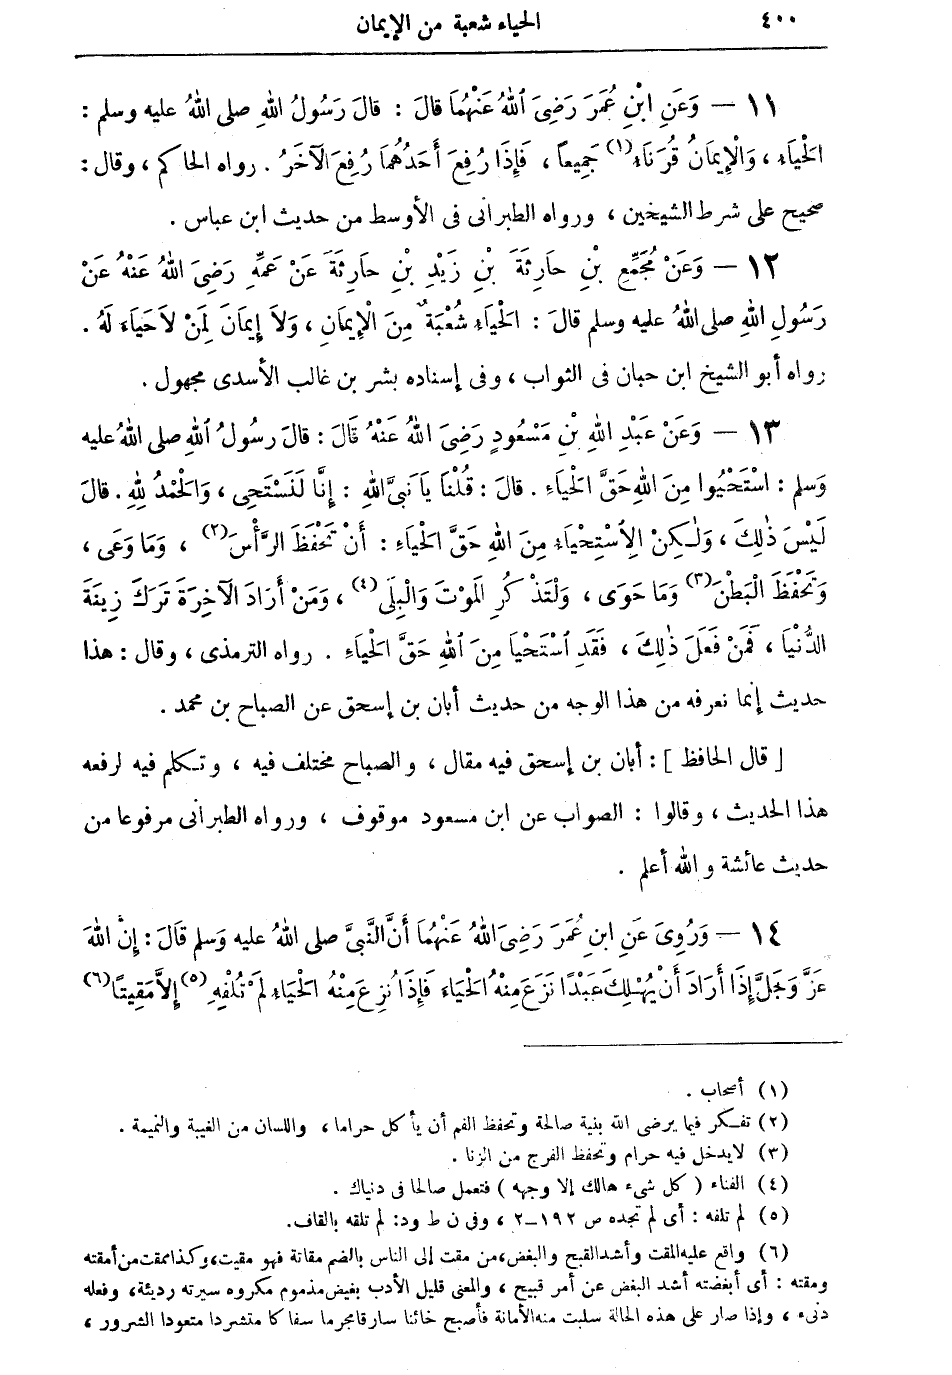 ٤٠٠ الحياء شعبة من الإيمان
١١ — وَعَنِ ابْنِ عُمَرَ رَضِيَ ٱللهُ عَنْهُمَا قالَ : قالَ رَسُولُ اللهِ صلى اللهُ عليه وسلم :
الحْيَاءِ ، وَالْإِيمَانُ قُرَنَاءِ (١) جَمِيعاً ، فَإِذَا رُفِعَ أَحَدُهُمَا رُفِعَ الآخَرُ . رواه الحاكم ، وقال :
صحيح على شرط الشيخين ، ورواه الطبرانى فى الأوسط من حديث ابن عباس .
١٢ — وَعَنْ مُجَمِّعِ بْنِ حَارِثَةَ بْنِ زَيْدِ بْنِ حَارِثَةَ عَنْ عَمِّهِ رَضِيَ اللهُ عَنْهُ عَنْ
رَسُولِ اللهِ صلى اللهُ عليه وسلم قالَ : الحَيَاءِ شُعْبَةٌ مِنَ الْإِيمَانِ ، وَلاَ إِيمَانَ لِمَنْ لاَ حَيَاءَ لَهُ .
رواه أبو الشيخ ابن حبان فى الثواب ، وفى إسناده بشر بن غالب الأسدى مجهول .
١٣ — وَعَنْ عَبْدِ اللهِ بْنِ مَسْعُودٍ رَضِيَ اللهُ عَنْهُ قَالَ : قالَ رسولُ ٱللهِ صلى اللهُ عليه
وَسلم : اسْتَحْيُوا مِنَ اللهِ حَقَّ الحْيَاءِ . قالَ : قُلْنَا يَا نَبِيَّ اللهِ : إِنَّا لَنَسْتَحِى ، وَالحَمْدُ لِلهِ . قالَ
لَيْسَ ذٰلِكَ ، وَلٰكِنْ الِاسْتِحْيَاءِ مِنَ اللهِ حَقَّ الحْيَاءِ : أَنْ تَحْفَظَ الرَّأْسَ (٢) ، وَمَا وَعَى ،
وَتَحْفَظَ الْبَطْنَ (٣) وَمَا حَوَى ، وَلْتَذْكُرِ المَوْتَ وَالْبِلَى (٤) ، وَمَنْ أَرَادَ الآخِرَةَ تَرَكَ زِينَةَ
الدُّنْيَا ، فَمَنْ فَعَلَ ذٰلِكَ ، فَقَدِ ٱسْتَحْيَا مِنَ ٱللهِ حَقَّ الحْيَاءِ . رواه الترمذى ، وقال : هذا
حديث إنما نعرفه من هذا الوجه من حديث أبان بن إسحق عن الصباح بن محمد .
[ قال الحافظ ] : أبان بن إسحق فيه مقال ، والصباح مختلف فيه ، وتكلم فيه لرفعه
هذا الحديث ، وقالوا : الصواب عن ابن مسعود موقوف ، ورواه الطبرانى مرفوعا من
حديث عائشة والله أعلم .
١٤ — وَرُوِىَ عَنِ ابنِ عُمَرَ رَضِىَ اللهُ عَنْهُمَا أَنَّ النَّبِىَّ صلى اللهُ عليه وَسلم قَالَ : إِنَّ اللهَ
عَزَّ وَجَلَّ إِذَا أَرَادَ أَنْ يُهْلِكَ عَبْدًا نَزَعَ مِنْهُ الحْيَاءَ فَإِذَا نُزِعَ مِنْهُ الحْيَاءِ لَمْ تُلْفِهِ (٥) إِلاَّ مَقِيتًا (٦)
(١) أصحاب .
(٢) تفكر فيما يرضى الله بنية صالحة وتحفظ الفم أن يأكل حراما ، واللسان من الغيبة والنميمة .
(٣) لايدخل فيه حرام وتحفظ الفرج من الزنا .
(٤) الفناء ( كل شىء هالك إلا وجهه ) فتعمل صالحا فى دنياك .
(٥) لم تلفه : أى لم تجده ص ١٩٢ — ٢ ، وفى ن ط و د : لم تلقه بالقاف .
(٦) واقع عليه المقت وأشد القبح والبغض ، من مقت إلى الناس بالضم مقاتة فهو مقيت ، وكذا مقت من أمقته
ومقته : أى أبغضته أشد البغض عن أمر قبيح ، والمعنى قليل الأدب بغيض مذموم مكروه سيرته رديئة ، وفعله
دنىء ، وإذا صار على هذه الحالة سلبت منه الأمانة فأصبح خائنا سارقا مجرما سفاكا متشردا متعودا الشرور ،